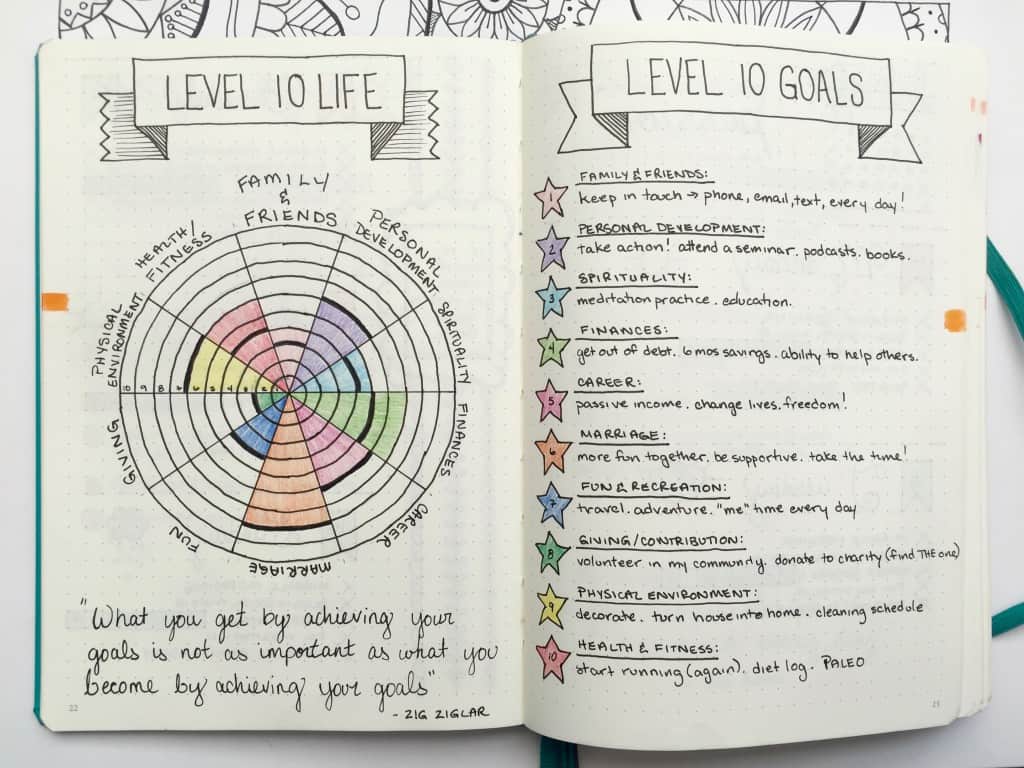 LEVEL 10 LIFE
FAMILY
&
FRIENDS
PERSONAL
DEVELOPMENT
SPIRITUALITY
FINANCES
CAREER
MARRIAGE
FUN
GIVING
PHYSICAL
ENVIRONMENT
HEALTH/
FITNESS
10 9 8 7 6 5 4 3 2 1
"What you get by achieving your
goals is not as important as what you
become by achieving your goals"
- ZIG ZIGLAR
22
LEVEL 10 GOALS
FAMILY & FRIENDS:
1 keep in touch → phone, email, text, every day!
PERSONAL DEVELOPMENT:
2 take action! attend a seminar. podcasts. books.
SPIRITUALITY:
3 meditation practice. education.
FINANCES:
4 get out of debt. 6 mos savings. ability to help others.
CAREER:
5 passive income. change lives. freedom!
MARRIAGE:
6 more fun together. be supportive. take the time!
FUN & RECREATION:
7 travel. adventure. "me" time every day
GIVING/CONTRIBUTION:
8 volunteer in my community. donate to charity (find THE one)
PHYSICAL ENVIRONMENT:
9 decorate. turn house into home. cleaning schedule
HEALTH & FITNESS:
10 start running (again). diet log. PALEO
23